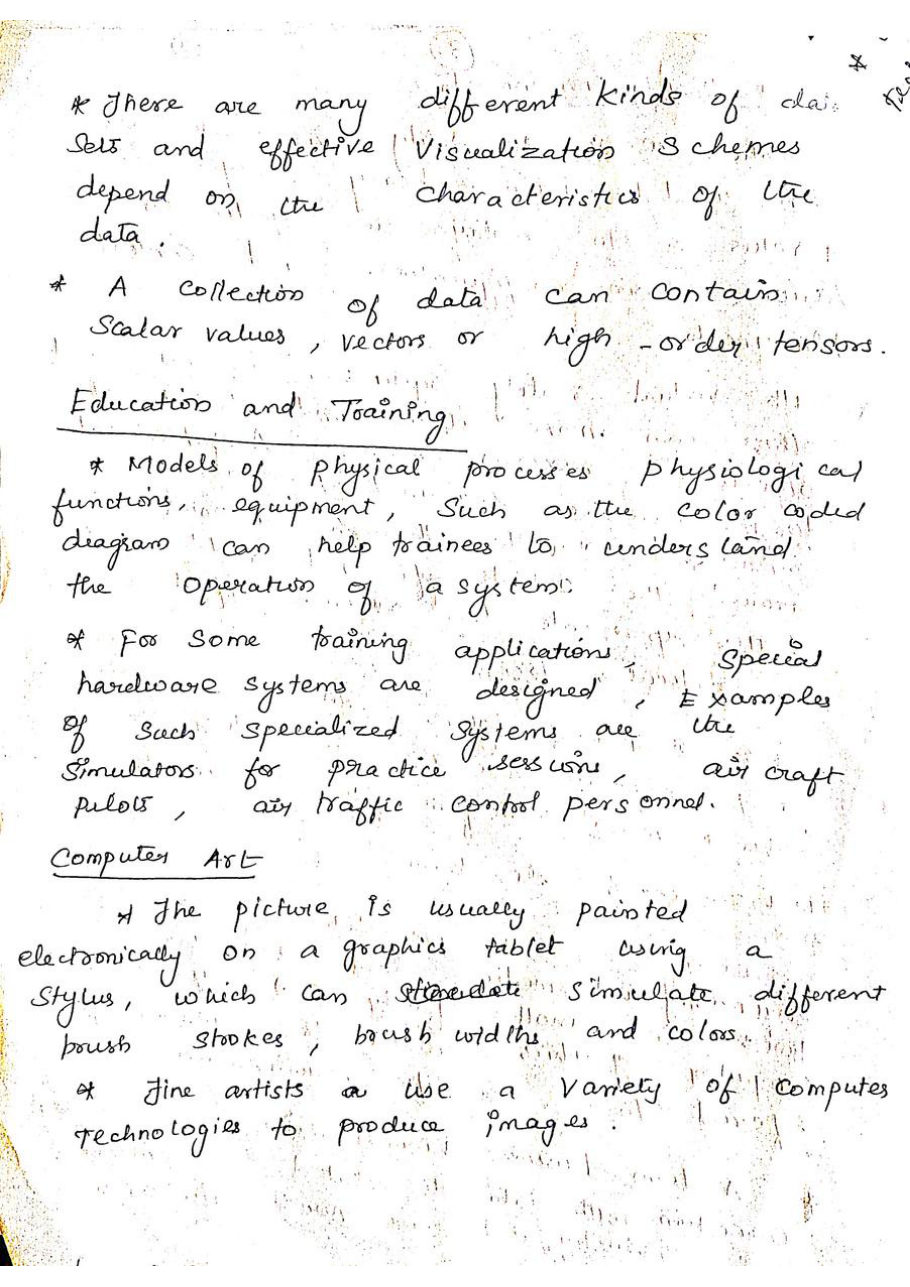 * There are many different kinds of data
sets and effective Visualization Schemes
depend on the characteristics of the
data.
* A collection of data can contain
Scalar values, vectors or high-order tensors.
Education and Training
* Models of physical processes physiological
functions, equipment, Such as the color coded
diagram can help trainees to understand
the operation of a system.
* For Some training applications, special
hardware systems are designed, Examples
of such specialized systems are the
Simulators for practice sessions, air craft
pilots, air traffic control personnel.
Computer Art
* The picture is usually painted
electronically on a graphics tablet using a
Stylus, which can simulate different
brush strokes, brush widths and colors.
* Fine artists use a variety of computer
technologies to produce images.